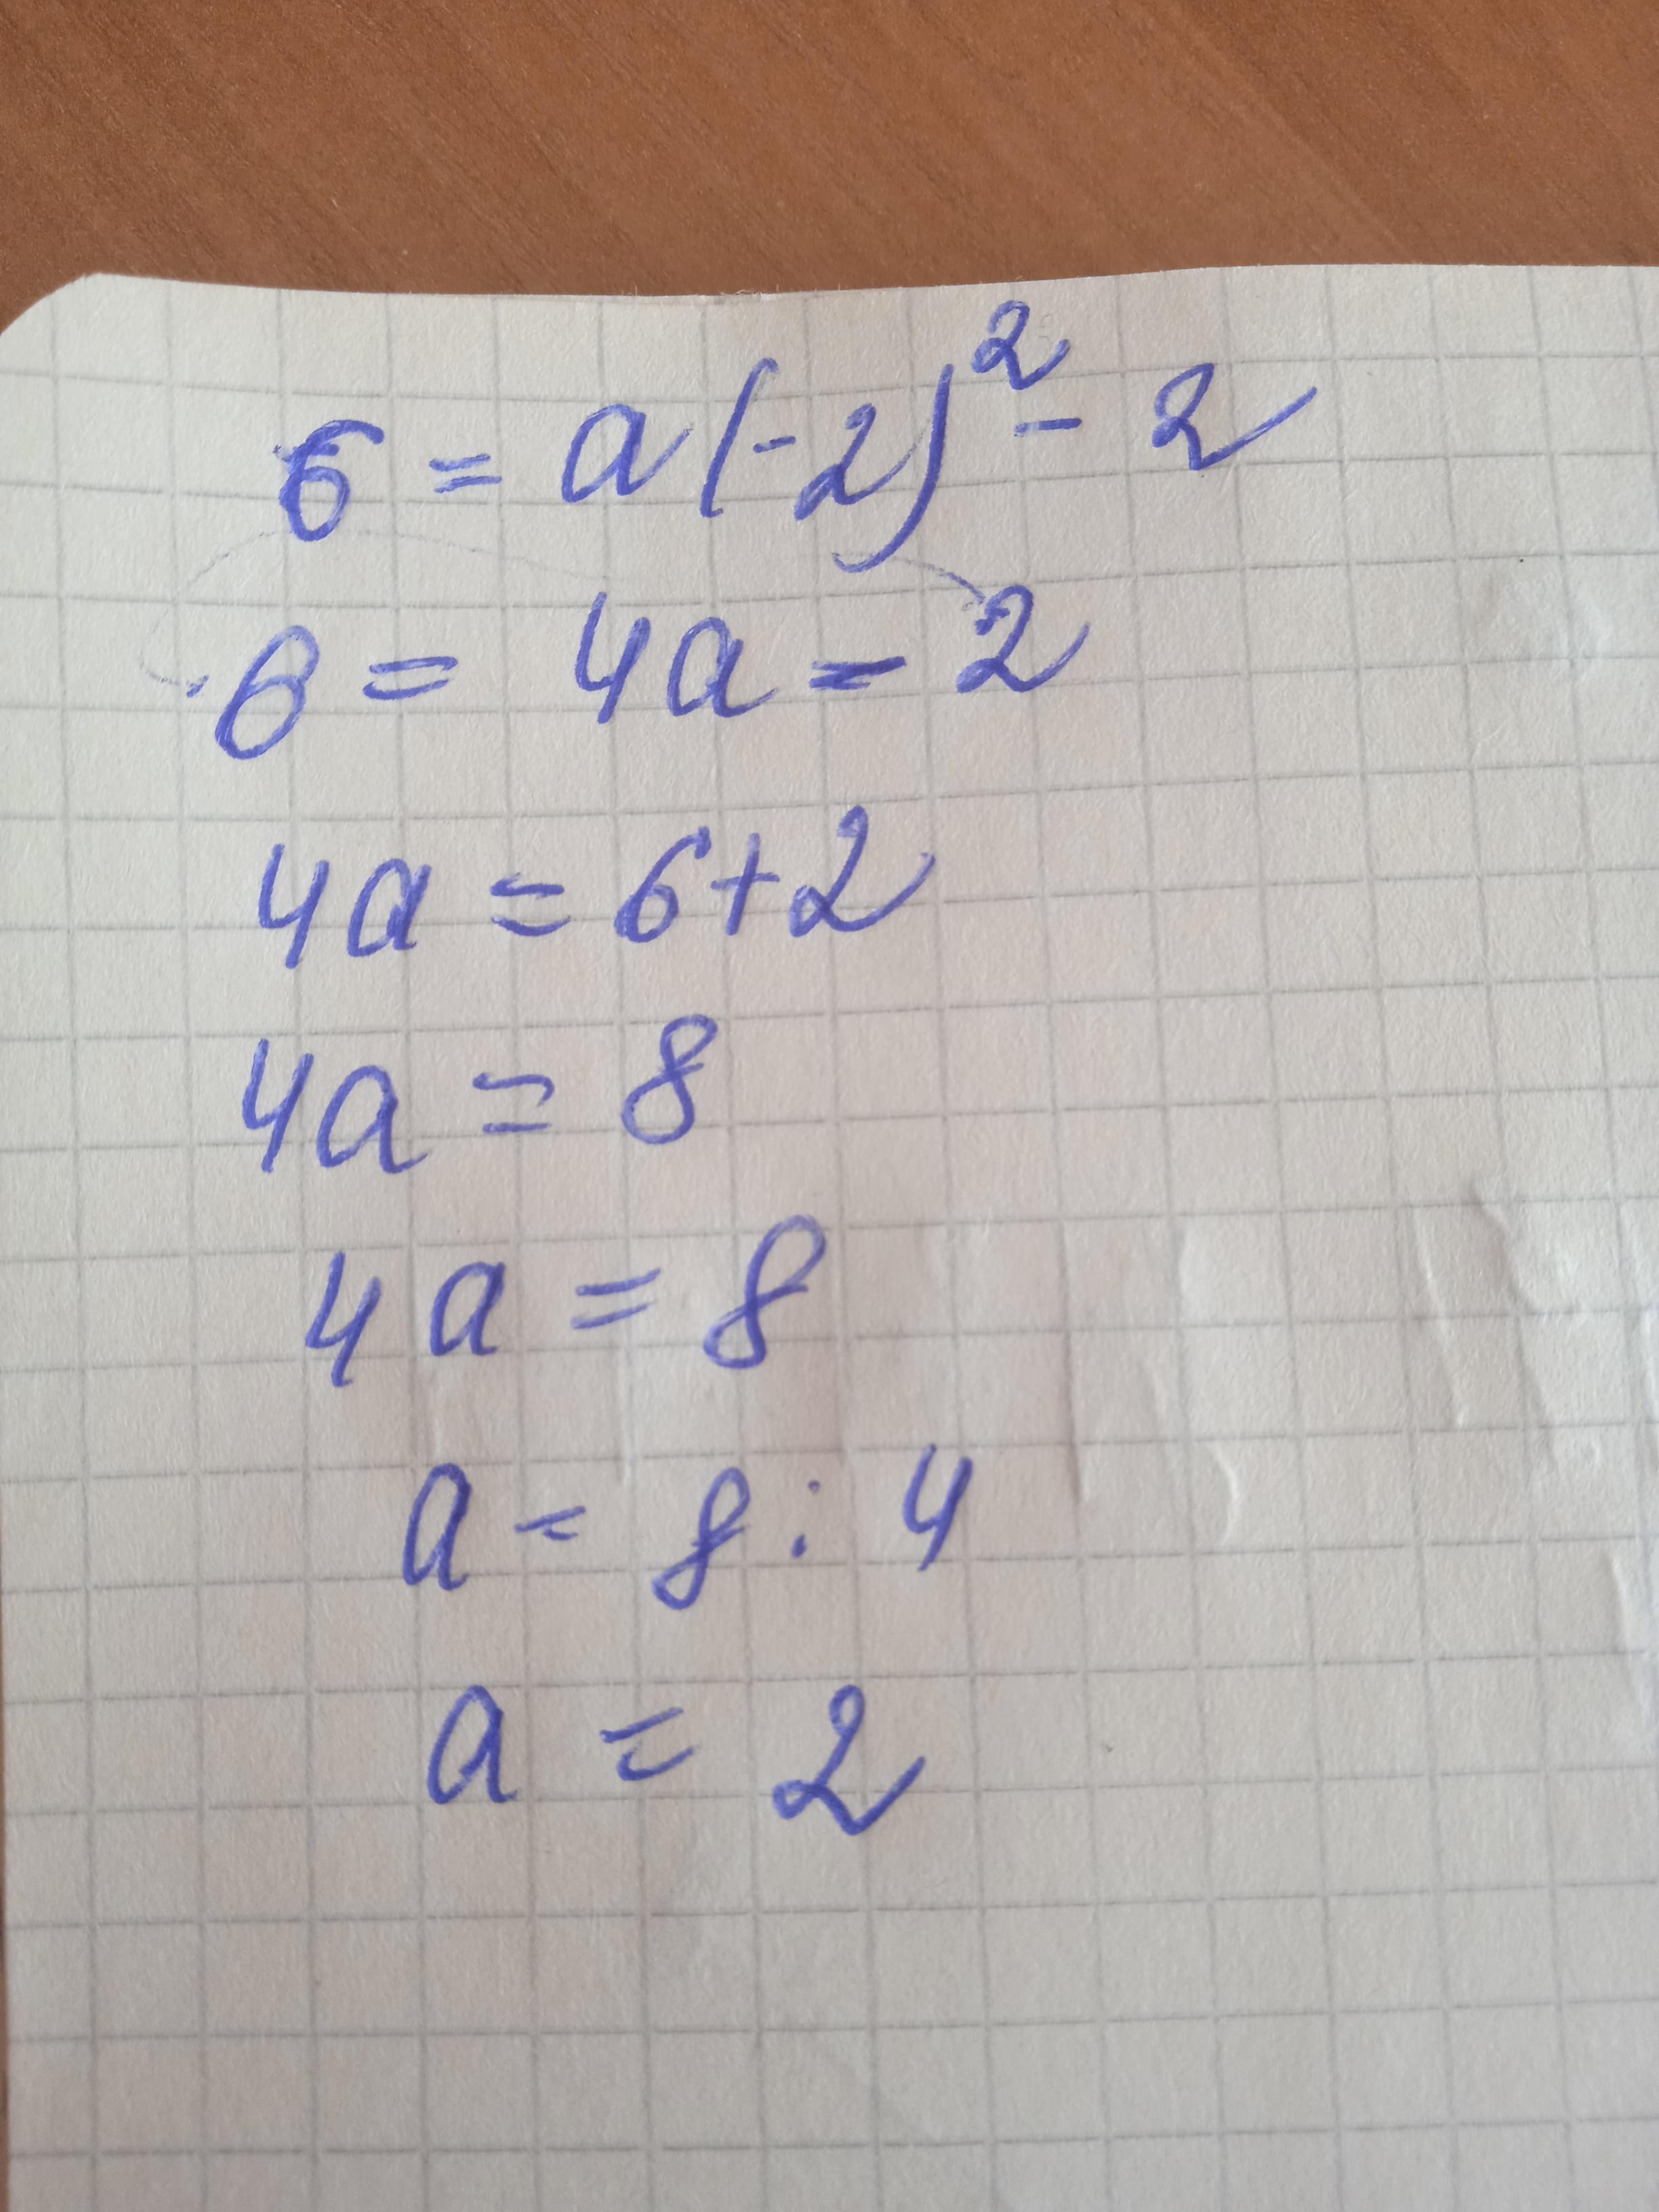 6 = a(-2)² - 2
6 = 4a - 2
4a = 6+2
4a = 8
4a = 8
a = 8 : 4
a = 2